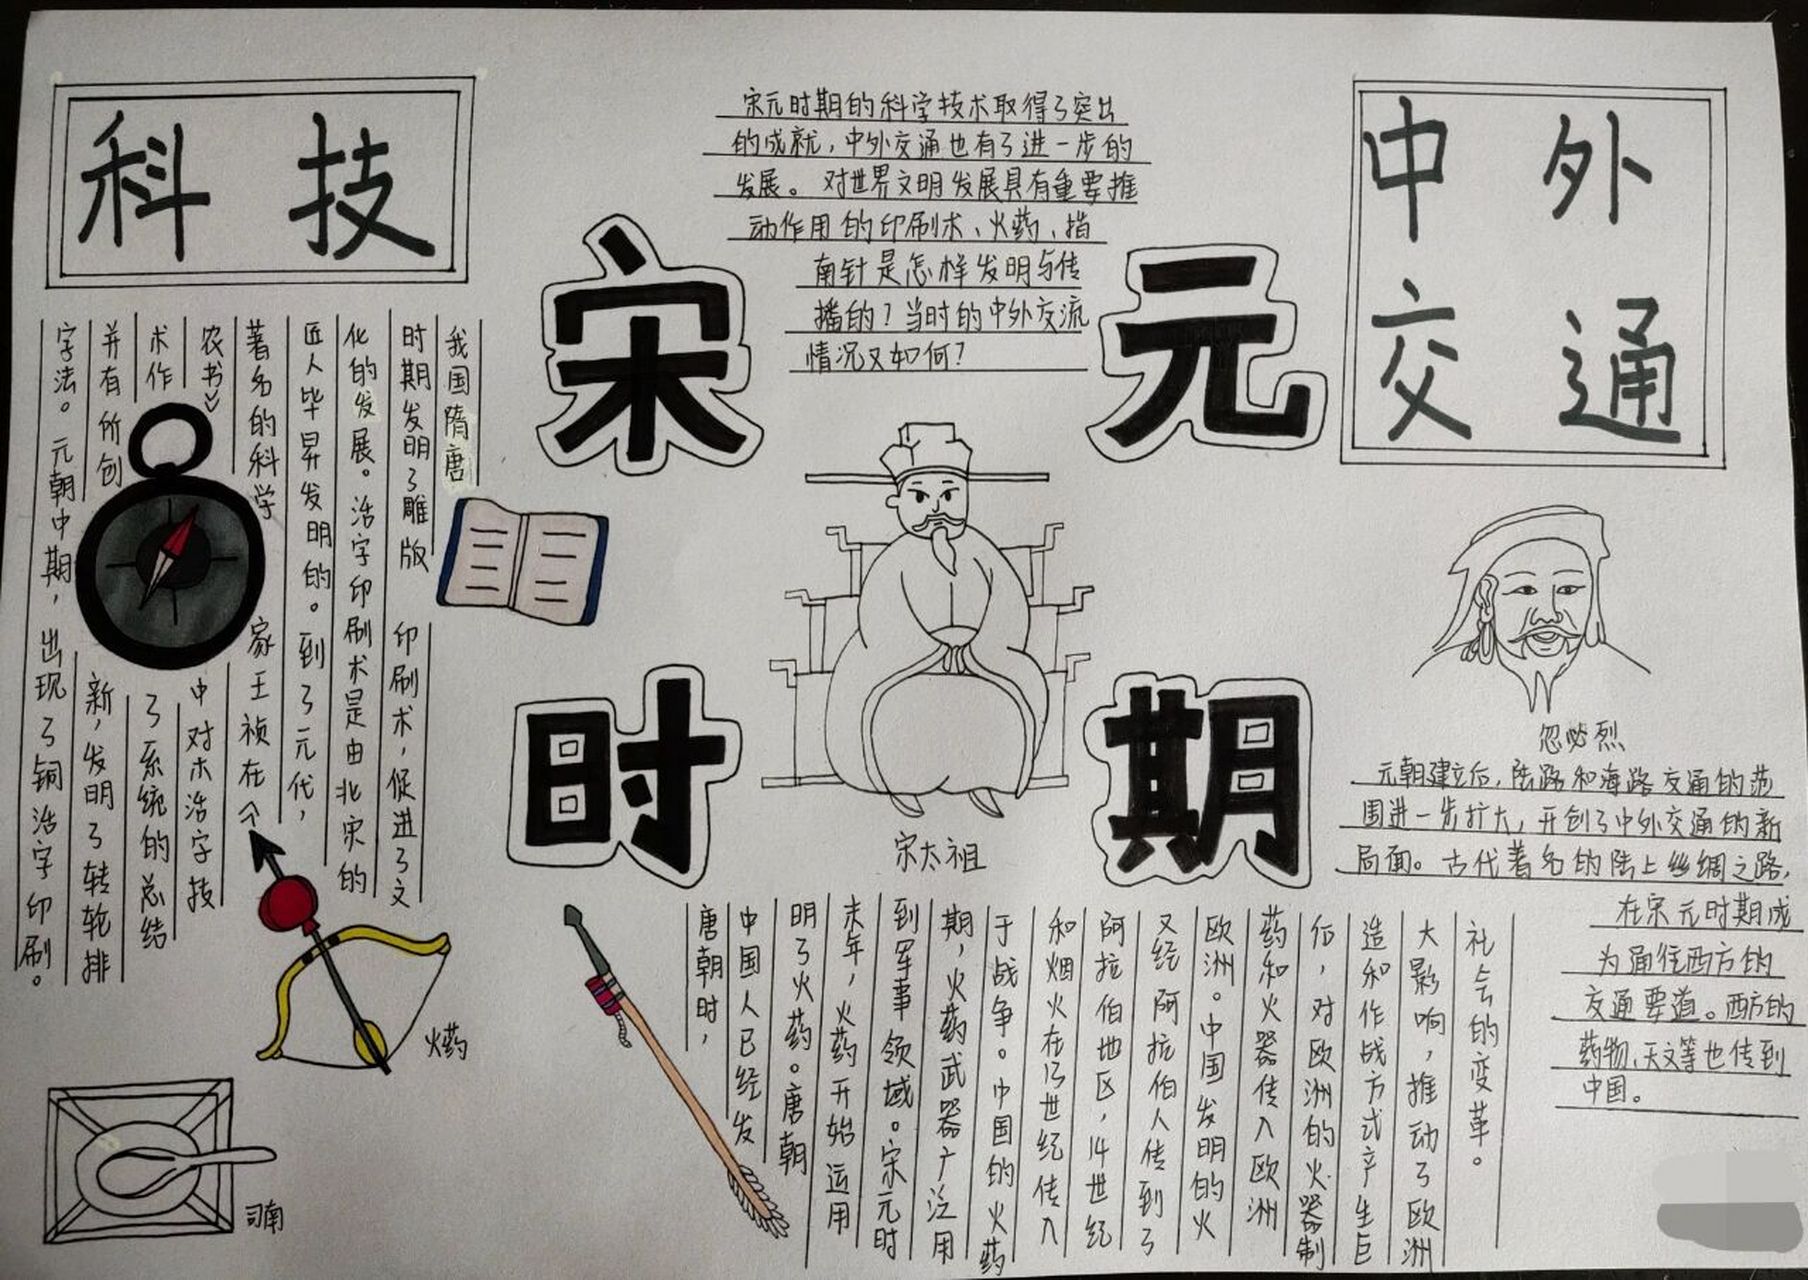 科技
宋元时期的科学技术取得了突出
的成就，中外交通也有了进一步的
发展。对世界文明发展具有重要推
动作用的印刷术、火药、指
南针是怎样发明与传
播的？当时的中外交流
情况又如何？
中外
交通
宋元
时期
我国隋唐
时期发明了雕版印刷术，促进了文
化的发展。活字印刷术是由北宋的
匠人毕昇发明的。到了元代，
著名的科学家王祯在《
农书》中对木活字技
术作了系统的总结
并有所创新，发明了转轮排
字法。元朝中期，出现了铜活字印刷。
火药
司南
宋太祖
唐朝时，
中国人已经发
明了火药。唐朝
末年，火药开始运用
到军事领域。宋元时
期，火药武器广泛用
于战争。中国的火药
和烟火在13世纪传入
阿拉伯地区，14世纪
又经阿拉伯人传到了
欧洲。中国发明的火
药和火器传入欧洲
后，对欧洲的火器制
造和作战方式产生巨
大影响，推动了欧洲
社会的变革。
忽必烈
元朝建立后，陆路和海路交通的范
围进一步扩大，开创了中外交通的新
局面。古代著名的陆上丝绸之路，
在宋元时期成
为通往西方的
交通要道。西方的
药物、天文等也传到
中国。